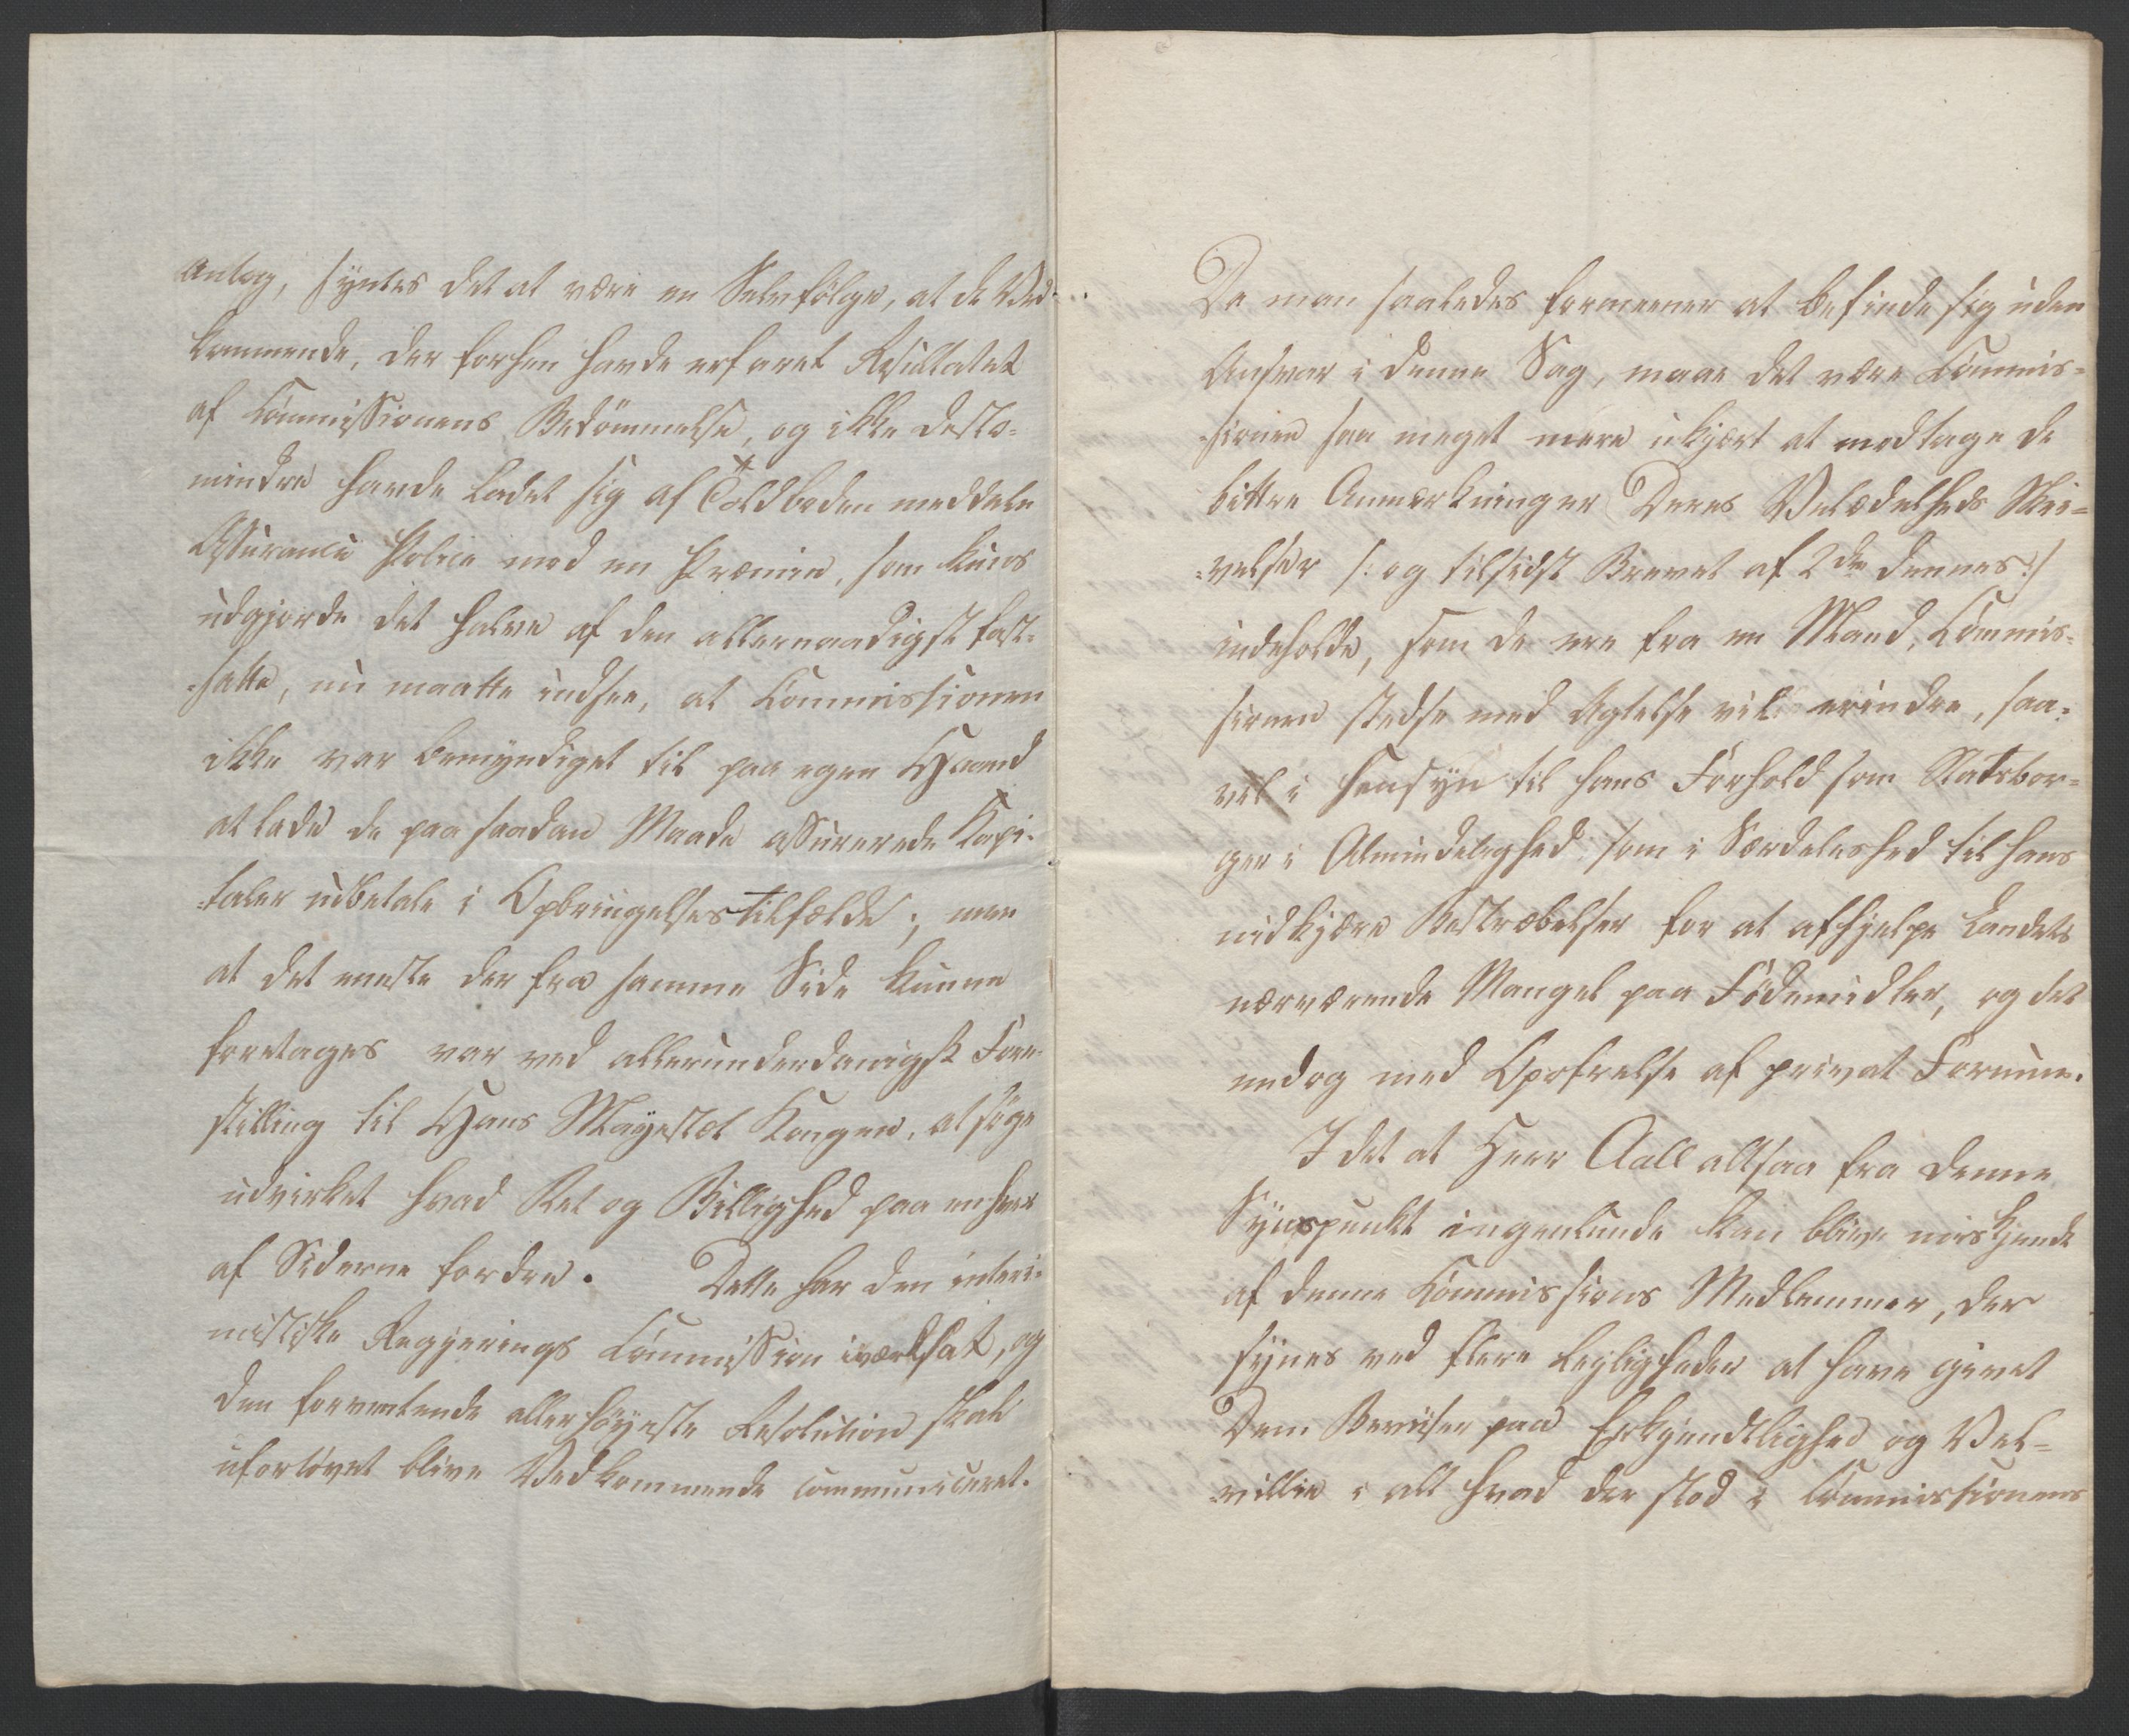 Antog, syntes det at være en Selvfölge, at de Ved-
kommende, der forhen havde erfaret Resultatet
af Commissionens Bedömmelse, og ikke desto-
mindre havde ladet sig af Toldboden meddele
Assurance Police med en Præmie, som kuns
udgjorde det halve af den allernaadigst fast-
-satte, nu maatte indsee, at Commissionen
ikke var bemyndiget til paa egen Haand
at lade de paa saadan Maade assurerede Kapi-
-taler udbetale i Opbringelsestilfælde; men
at det eneste der fra samme Side kunne
foretages var ved allerunderdanigst Fore-
stilling til Hans Mayestæt Kongen, at söge
udvirket hvad Ret og Billighed paa enhver
af Siderne fordre. Dette har den interi-
mistiske Regjerings Commission iværksat, og
den forventende allerhöyeste Resolution skal
ufortövet blive Vedkommende communiceret.
Da man saaledes formeener at befinde sig uden
Ansvar i denne Sag, maae det være Commis-
-sionen saa meget mere ukjært at modtage de
bittre Anmærkninger Deres Velædelheds Skri-
-velser /: og tilsidst Brevet af 2den dennes :/
indeholde, som de ere fra en Mand, Commis-
sionen stedse med Agtelse vil erindre, saa-
vel i Hensyn til hans Forhold som Statsbor-
ger i Almindelighed som i Særdeleshed til hans
nidkjære Bestræbelser for at afhjelpe Landets
nærværende Mangel paa Födemidler, og det
endog med Opofrelse af privat Formue.
I det at Herr Aall altsaa fra denne
Synspunkt ingenlunde kan blive miskjendt
af denne Commissions Medlemmer, der
synes ved flere Leyligheder at have givet
Dem Beviser paa Erkjendtlighed og Vel-
-villie i alt hvad der stod i Commissionens